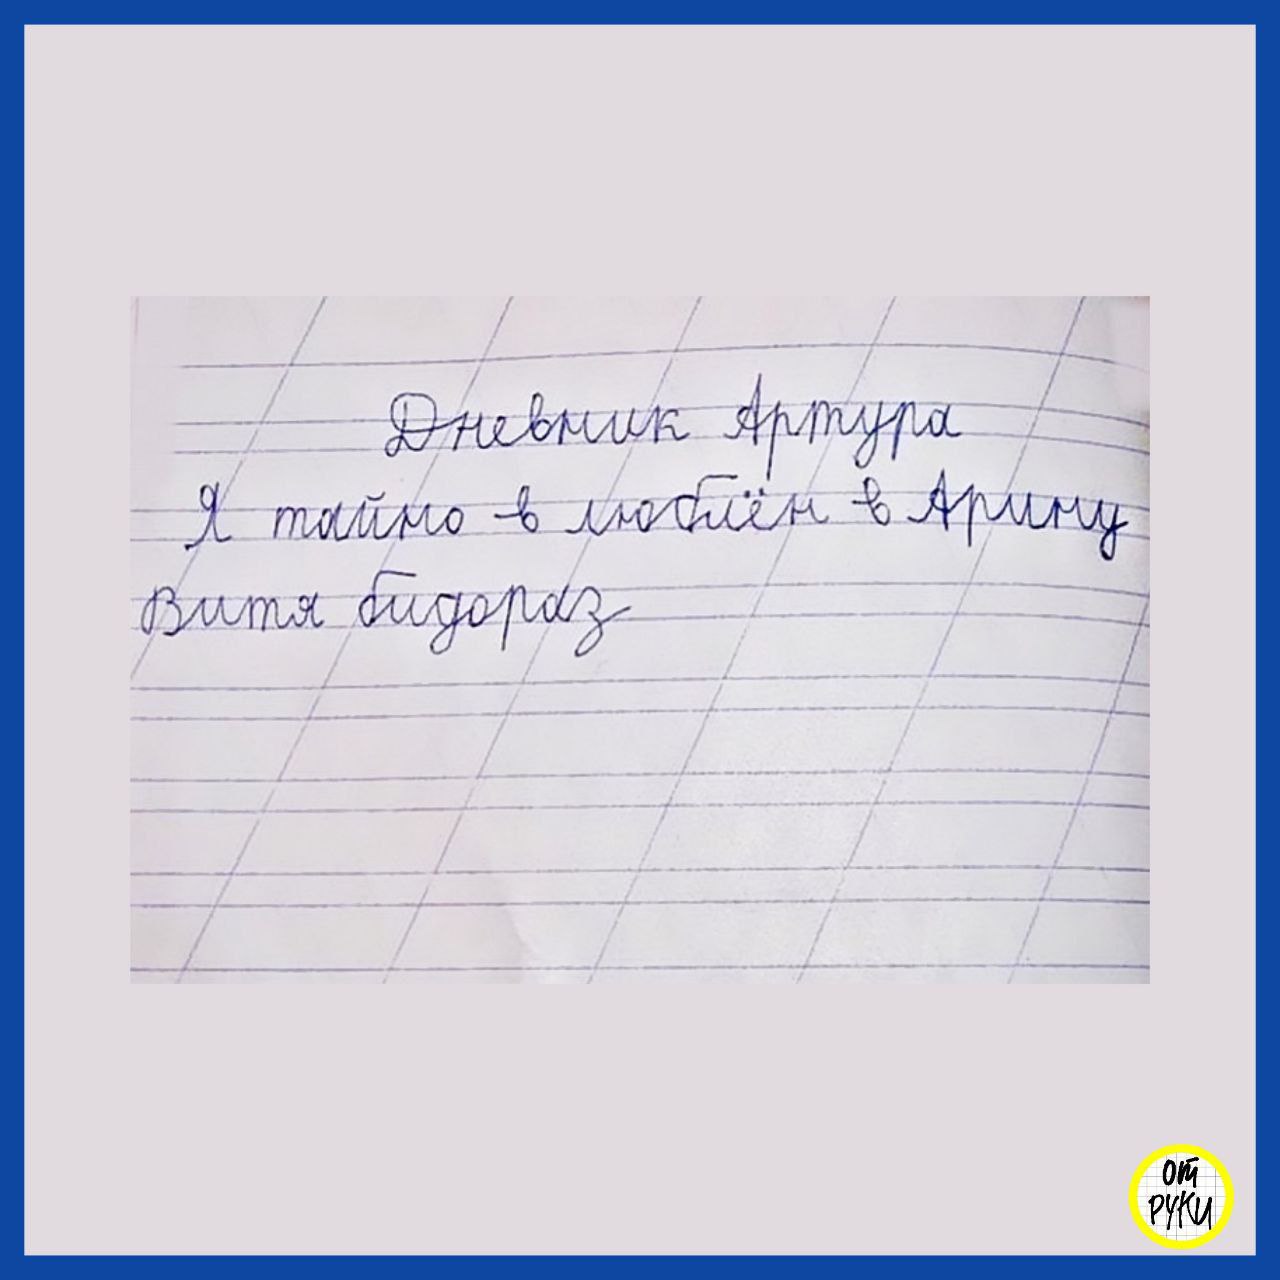 Дневник Артура
Я тайно в люблён в Арину
Витя бидораз
ОТ
РУКИ